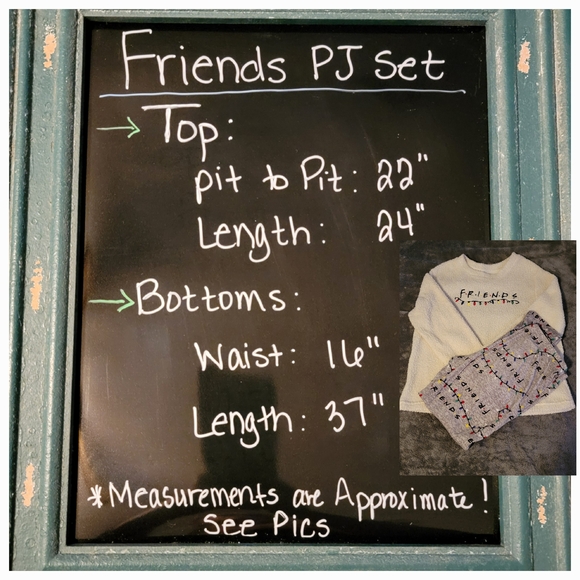 Friends PJ Set
→ Top:
Pit to Pit: 22"
Length: 24"
→ Bottoms:
Waist: 16"
Length: 37"
* Measurements are Approximate!
See Pics
F·R·I·E·N·D·S